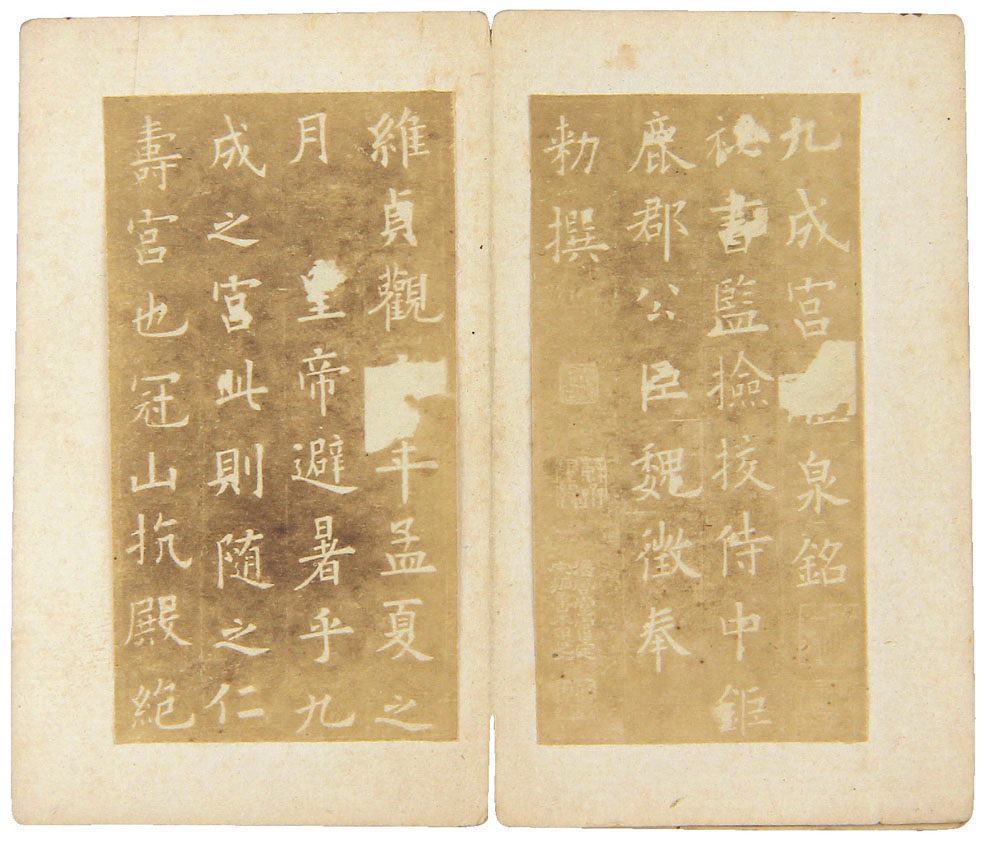 九成宮醴泉銘
秘書監撿挍侍中鉅
鹿郡公臣魏徵奉
勑撰
維貞觀年孟夏之
月皇帝避暑乎九
成之宮此則随之仁
壽宮也冠山抗殿絶